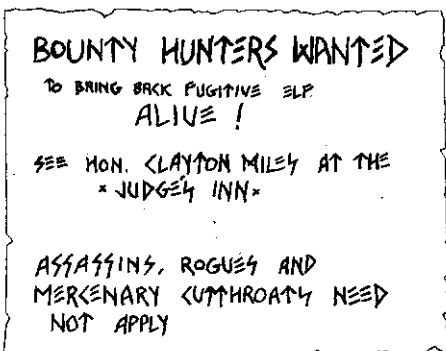 BOUNTY HUNTERS WANTED
TO BRING BACK FUGITIVE ELF
ALIVE!
SEE HON. CLAYTON MILES AT THE
* JUDGE'S INN *
ASSASSINS, ROGUES AND
MERCENARY CUTTHROATS NEED
NOT APPLY